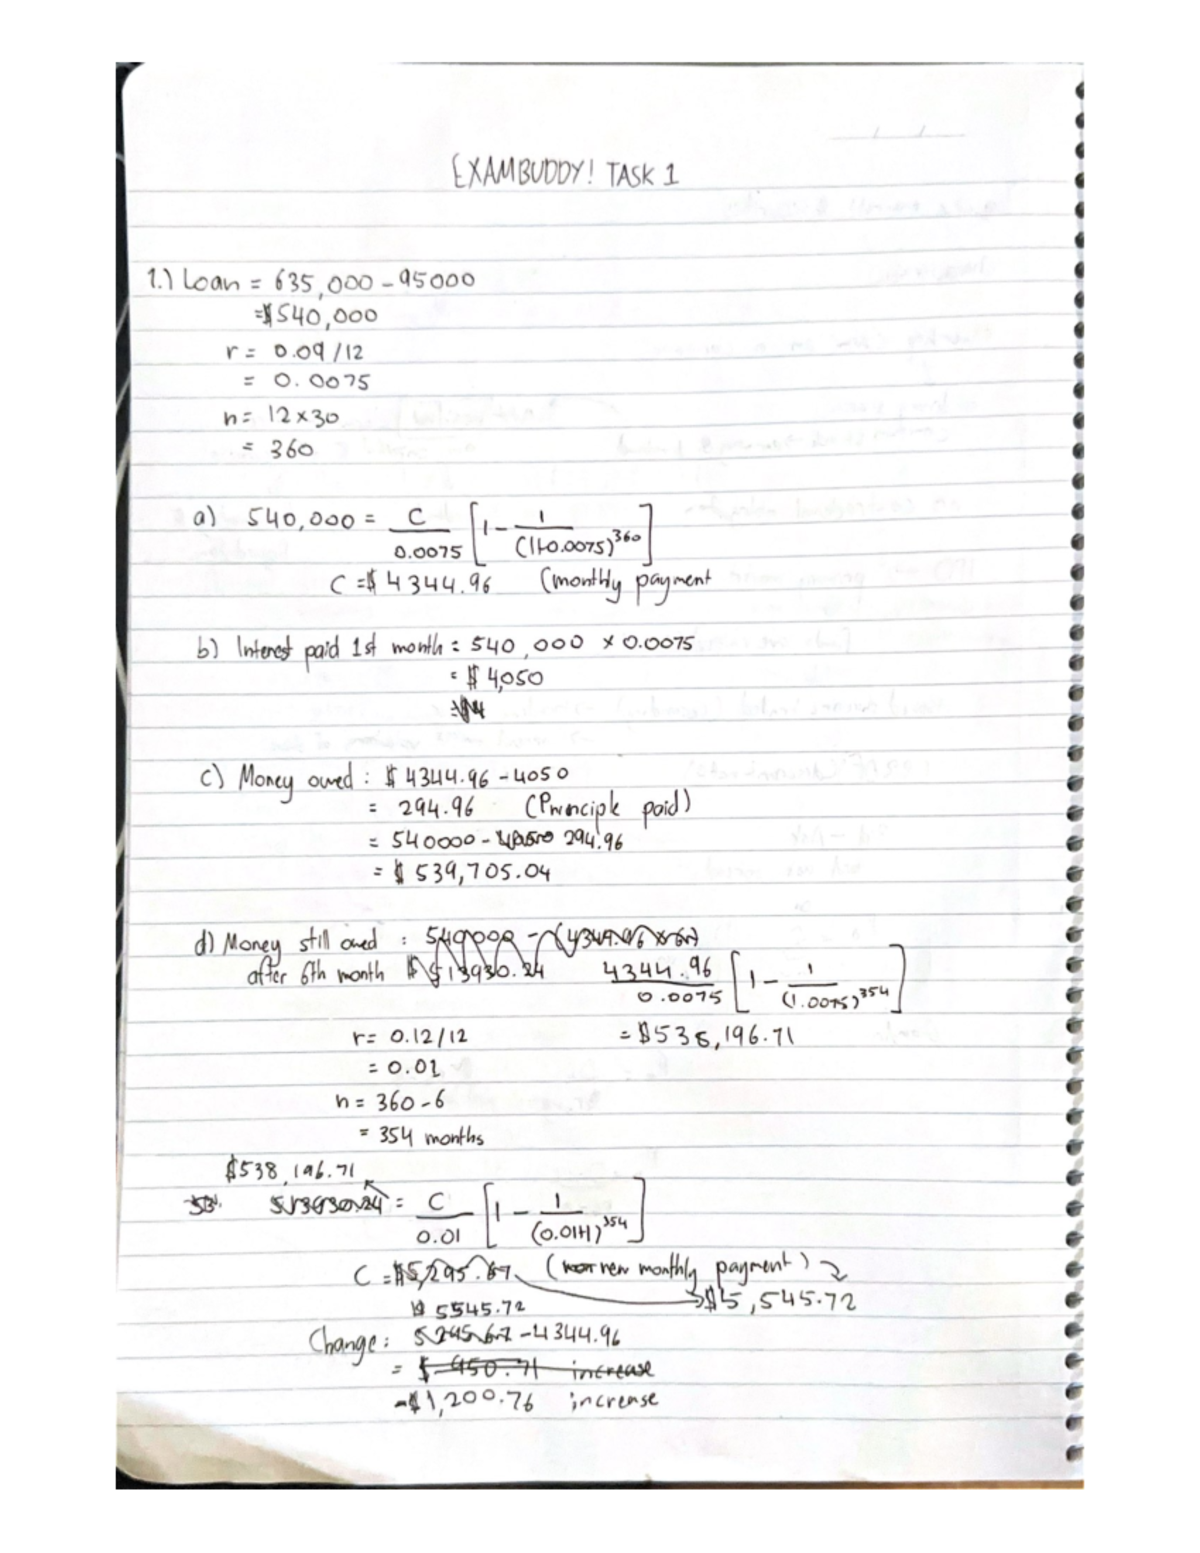 EXAMBUDDY! TASK 1
1.) Loan = 635,000 - 95000
= $540,000
r = 0.09/12
= 0.0075
n = 12 x 30
= 360
a) 540,000 = C/0.0075 [1 - 1/(1+0.0075)^360]
C = $4344.96 (monthly payment
b) Interest paid 1st month = 540,000 x 0.0075
= $4,050
c) Money owed : $4344.96 - 4050
= 294.96 (Principle paid)
= 540000 - 294.96
= $539,705.04
d) Money still owed :
after 6th month 4344.96/0.0075 [1 - 1/(1.0075)^354]
r = 0.12/12 = $538,196.71
= 0.01
n = 360 - 6
= 354 months
$538,196.71
= C/0.01 [1 - 1/(0.01+1)^354]
C = $5,295.67 (new monthly payment)
$5,545.72
$5545.72
Change : 5295.67 - 4344.96
= $950.71 increase
= $1,200.76 increase